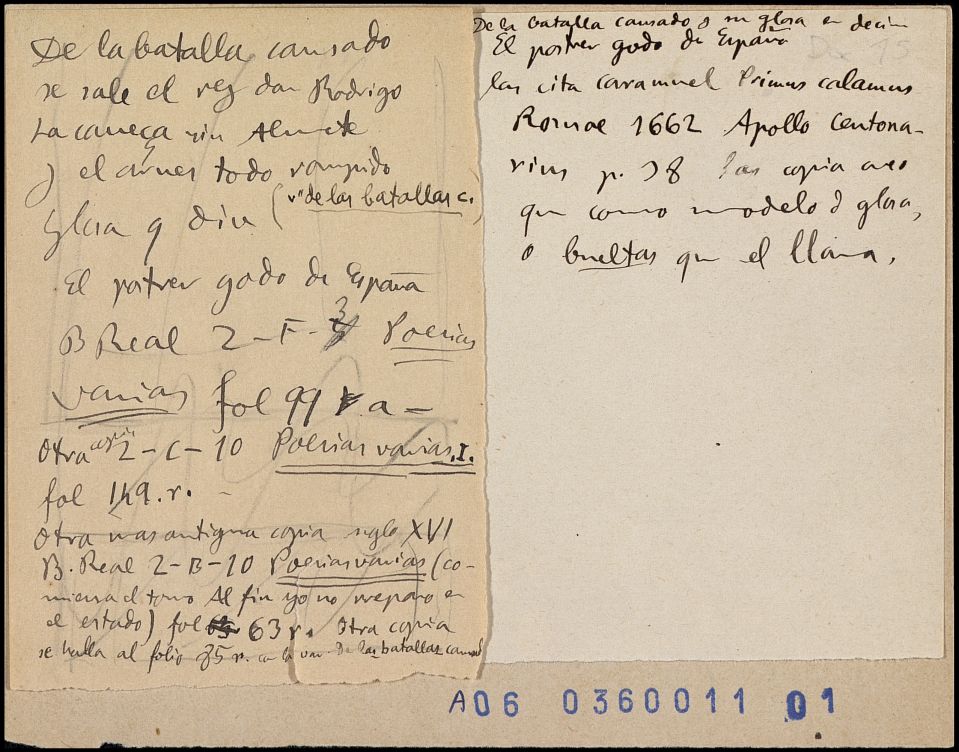 De la batalla cansado
se sale el rey don Rodrigo
La caueça sin Almete
y el arnes todo rompido
(vº de las batallas c.)
Glosa q dice
El postrer godo de España
B Real 2-F-3 Poesias
varias fol 99 r. a -
Otra copia 2-C-10 Poesias varias. I.
fol 149. r. -
Otra mas antigua copia siglo XVI
B. Real 2-B-10 Poesias varias (co-
mienza el tomo Al fin yo no reparo en
el estado) fol 63 r. Otra copia
se halla al folio 35 r. con la var. De las batallas cansado
De la batalla cansado y su glosa en decim
El postrer godo de España
las cita caramuel Primus calamus
Romae 1662 Apollo Centona-
rius p. 38 las copia creo
que como modelo d glosa,
o bueltas que el llama.
A06 0360011 01